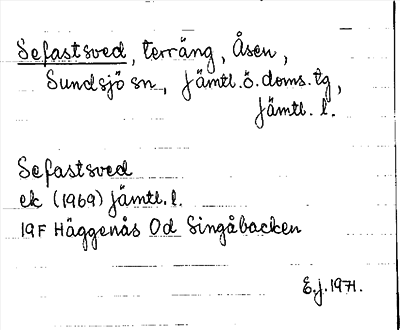 Sefastsved, terräng, Åsen,
Sundsjö sn, Jämtl. ö. doms. tg,
Jämtl. l.
Sefastsved
ek (1969) Jämtl. l.
19F Häggenås Od Singåbacken
E.j. 1971.